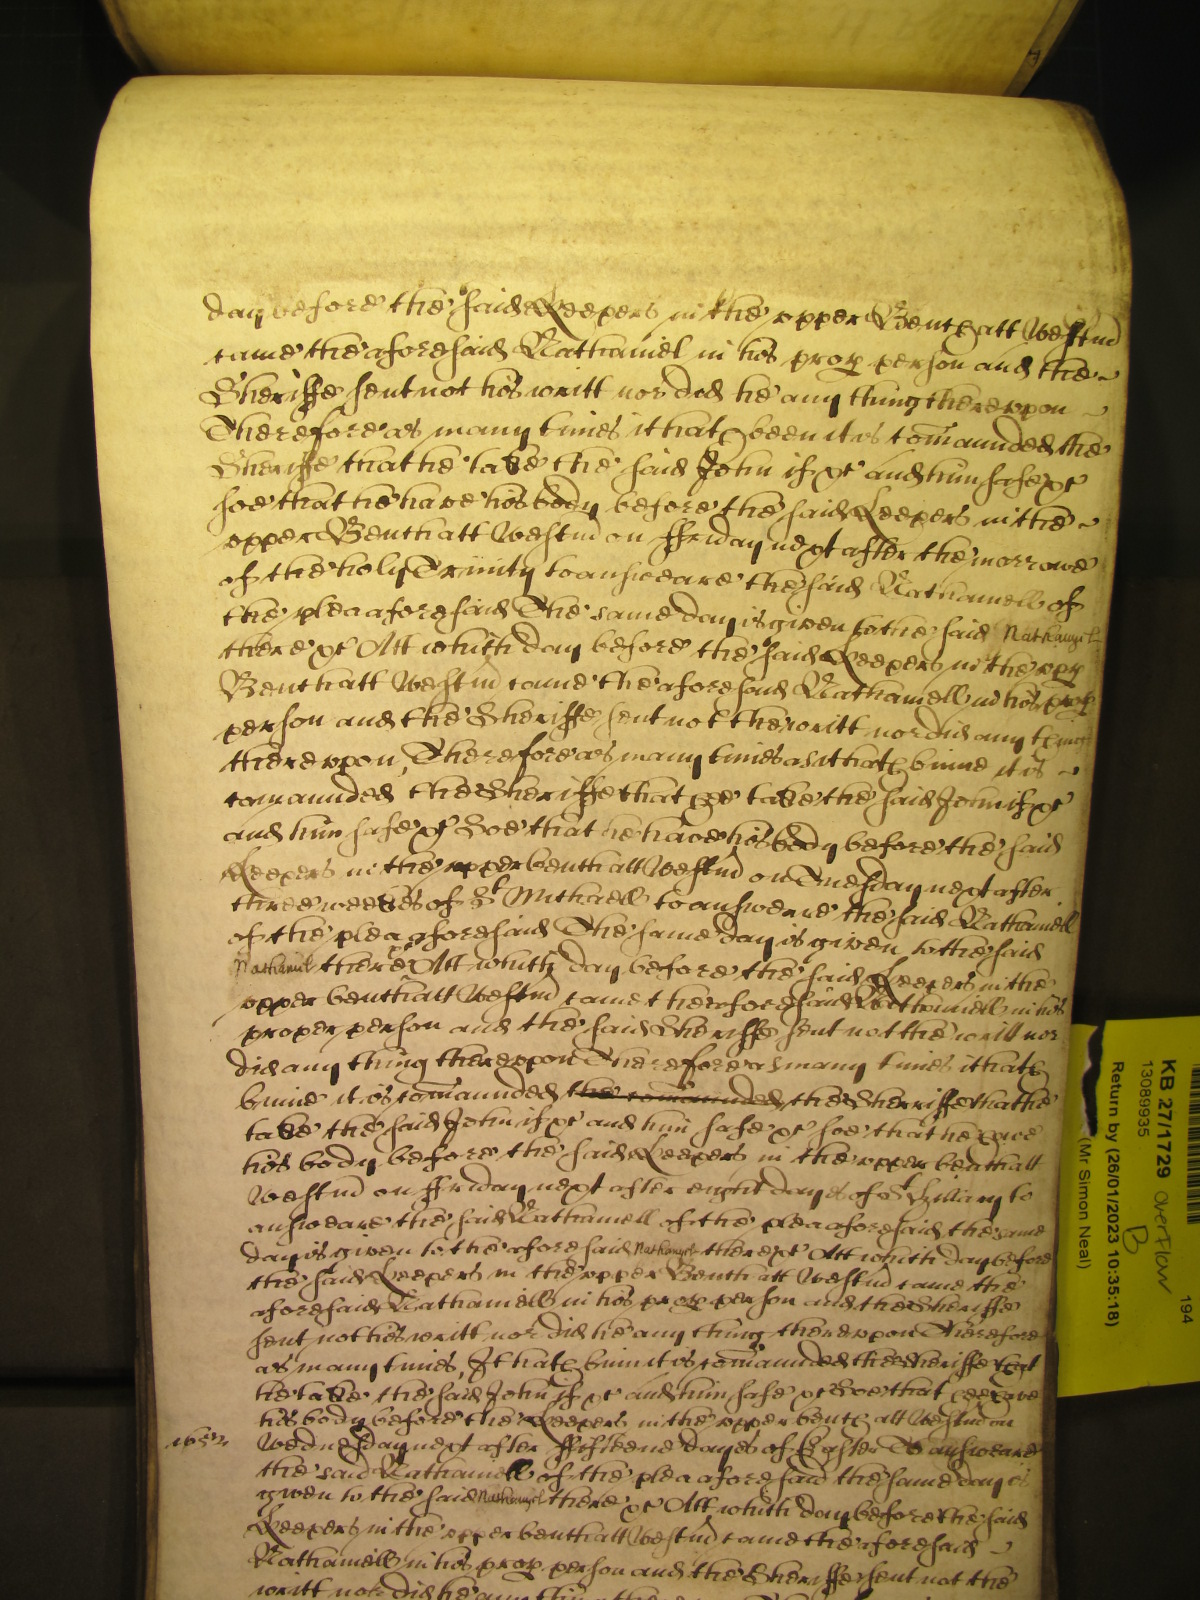 day before the said Keepers in the upper Bench att Westm̃
came the aforesaid Nathaniel in his prop person and the
Sheriffe sent not his writt nor did he any thing thereupon
Therefore as many times it hath been it is com̃aunded the
Sheriffe that he take the said John if &c and him safe &c
soe that he have his body before the said Keepers in the
upper Bench att Westm̃ on ffriday next after the morrowe
of the holy Trinity to answeare the said Nathaniell of
the plea aforesaid The same day is given to the said Nathanyel
there &c Att which day before the said Keepers in the upp
Bench att Westm̃ came the aforesaid Nathaniell in his prop
person and the Sheriffe sent not the writt nor did any thing
thereupon, Therefore as many times as it hath binne it is
comaunded the Sheriffe that he take the said John if &c
and him safe &c Soe that he have his body before the said
Keepers in the upper bench att Westm̃ on Tuesday next after
three weekes of St Michaell to answere the said Nathaniell
of the plea aforesaid The same day is given to the said
Nathaniel there &c Att which day before the said Keepers in the
upper bench att Westm̃ came the aforesaid Nathaniell in his
proper person and the said Sheriffe sent not the writt nor
did any thing thereupon Therefore as many times it hath
binne it is com̃aunded the com̃aunded the Sherriffe that he
take the said John if &c and him safe &c soe that he have
his body before the said Keepers in the upper bench att
Westm̃ on ffriday next after eight dayes of St Hillary to
answeare the said Nathaniell of the plea aforesaid the same
day is given to the aforesaid Nathanyel there &c Att which day before
the said Keepers in the upper Bench att Westm̃ came the
aforesaid Nathaniell in his prop person and the Sheriffe
sent not his writt nor did he any thing thereupon Therefore
as many times, It hath binn it is com̃aunded the Sheriffe that
he take the said John if &c and him safe &c Soe that he have
his body before the Keepers in the upper bench att Westm̃ on
1652 Wednesday next after ffifteene dayes of Easter To answeare
the said Nathaniell of the plea aforesaid the same day is
given to the said Nathanyel there &c Att which day before the said
Keepers in the upper bench att Westm̃ came the aforesaid
Nathaniell in his prop person and the Sheriffe sent not the
writt nor did he any thing
KB 27/1729 overflow
B
194
13089935
Return by (26/01/2023 10:35:18)
(Mr Simon Neal)